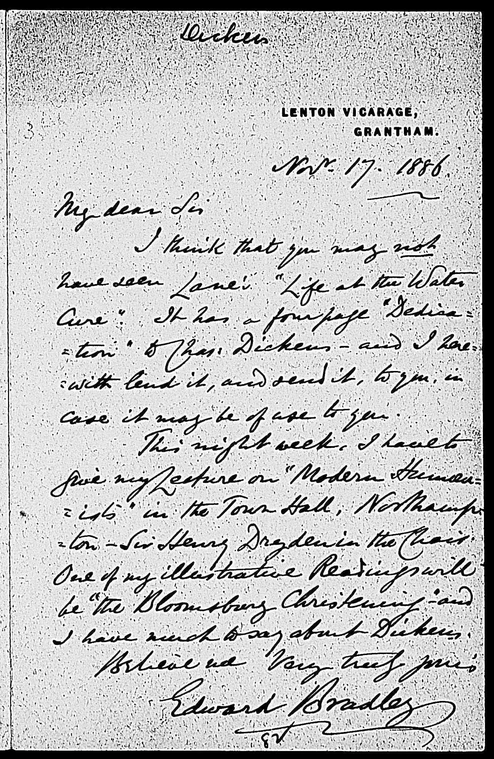 Dickens
LENTON VICARAGE,
GRANTHAM.
Novr. 17. 1886.
My dear Sir
I think that you may not
have seen Lane's "Life at the Water
Cure". It has a four page "Dedica=
=tion" to Chas: Dickens - and I here=
=with lend it, and send it, to you, in
case it may be of use to you.
This night week, I have to
give my Lecture on "Modern Humour=
=ists" in the Town Hall, Northamp=
=ton - Sir Henry Dryden in the Chair.
One of my illustrative Readings will
be "the Bloomsbury Christening" and
I have much to say about Dickens.
Believe me Very truly yours
Edward Bradley